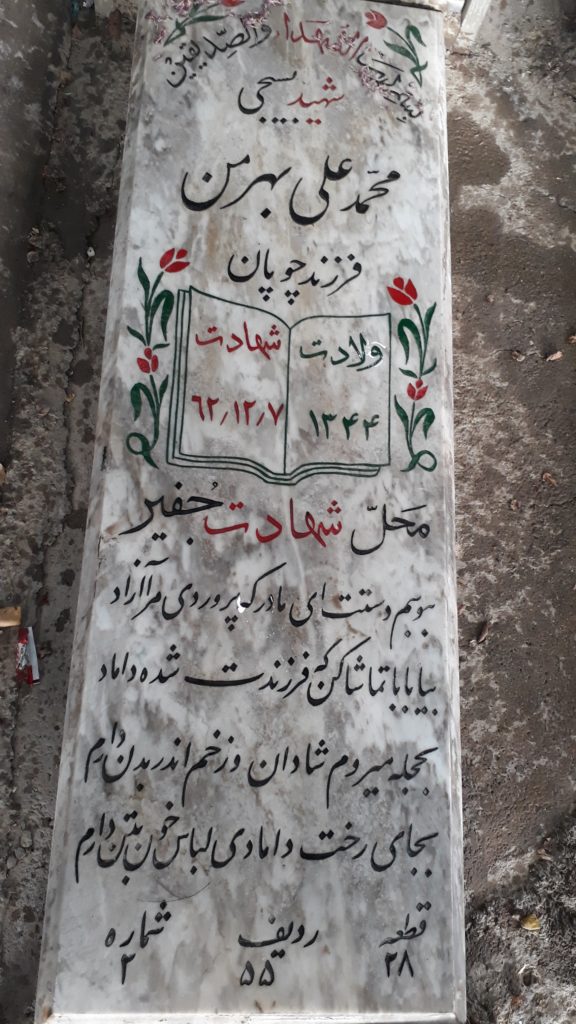 بسم رب الشهداء والصدیقین
شهید بسیجی
محمد علی بهرمن
فرزند چوپان
ولادت شهادت
۱۳۴۴ ۶۲٫۱۲٫۷
محلّ شهادت جُفیر
ببوسم دستت ای مادر که پروردی مرا آزاد
بیا بابا تماشا کن که فرزندت شده داماد
بحجله میروم شادان و زخم اندر بدن دارم
بجای رخت دامادی لباس خون بتن دارم
قطعه ردیف شماره
۲۸ ۵۵ ۲